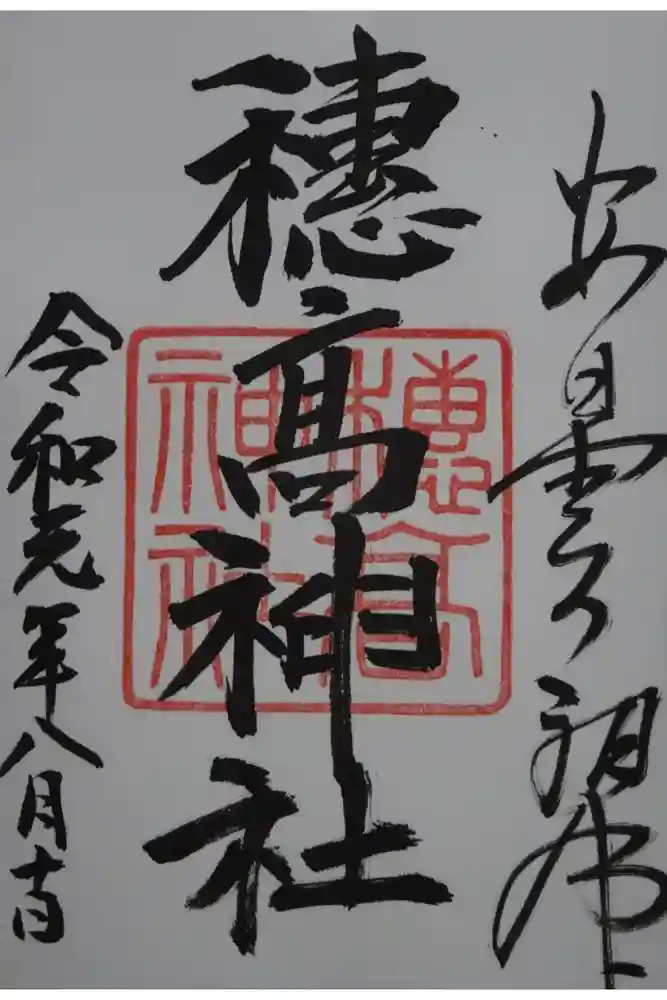 安曇野
穂高神社
穂高神社
令和元年八月十日